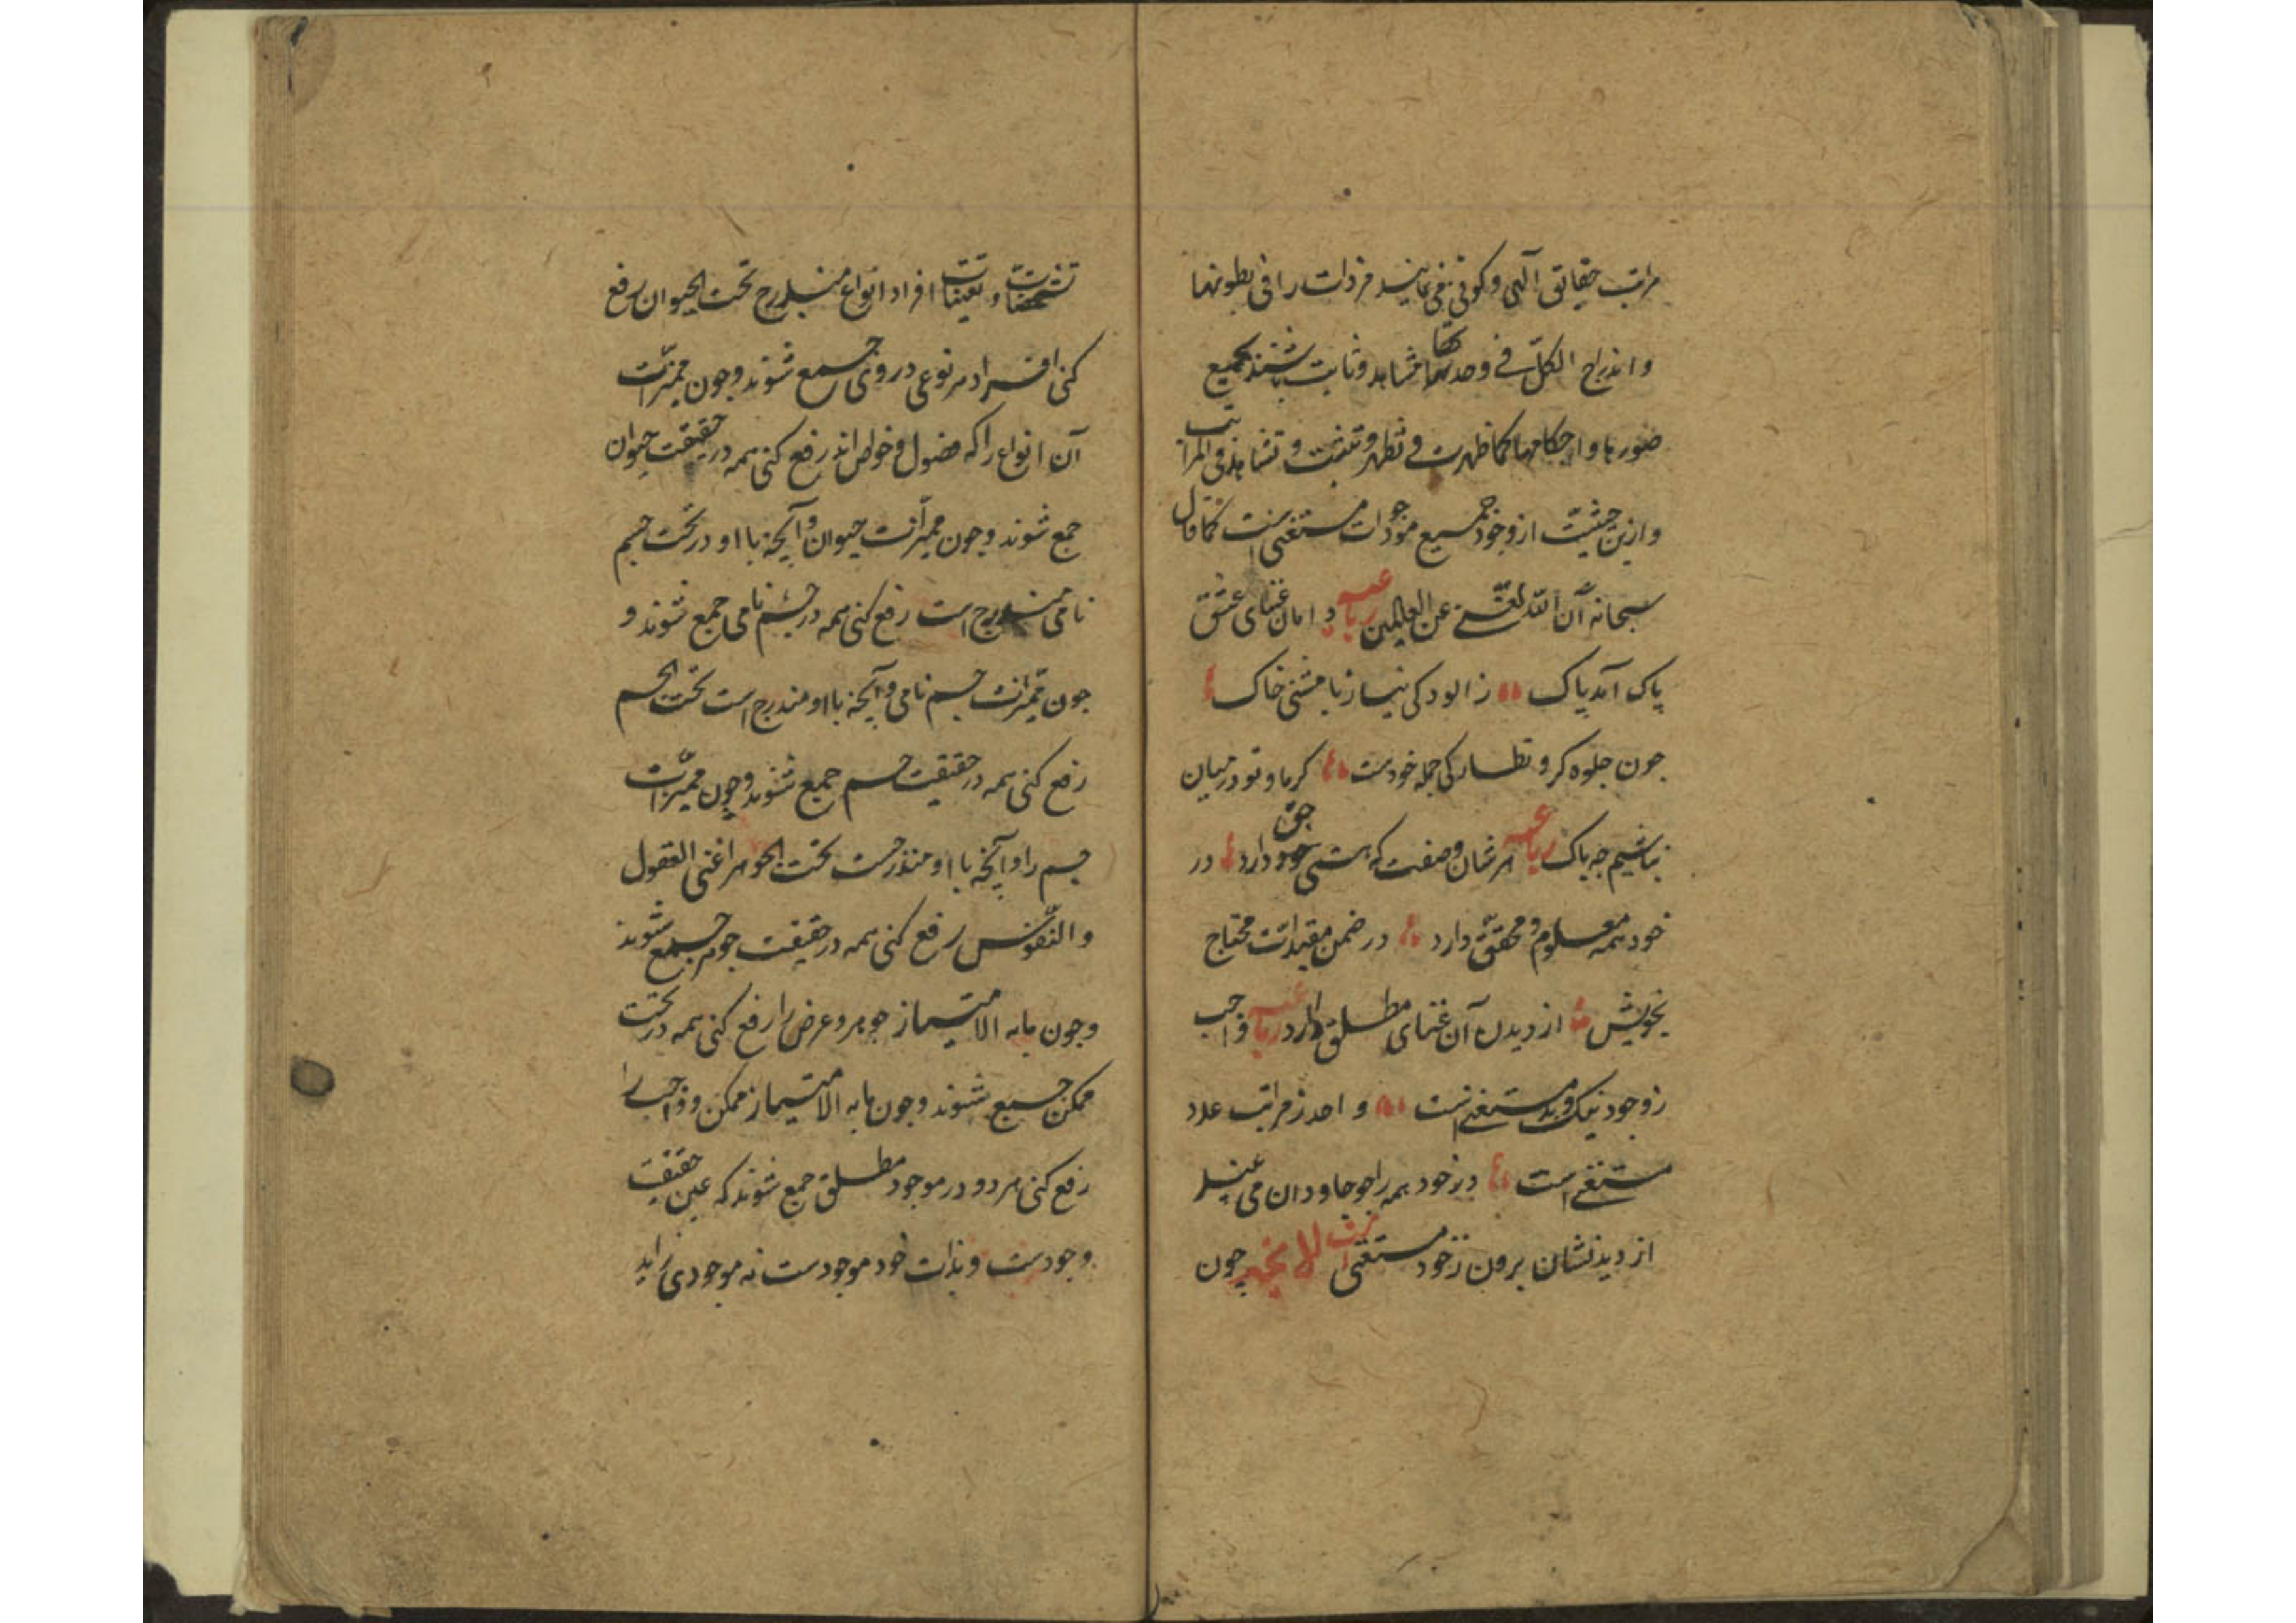 مراتب حقایق الهی و کونی می نمایند فردات را فی بطونها
و اندراج الکلّ فی وحدتها مشاهد و ثابت باشند بجمیع
صورها و احکامها کما ظهرت و تظهر و تثبت و تشاهد فی المراتب
و ازین حیثیّت از وجود جمیع موجودات مستغنی است کما قال
سبحانه انّ الله لغنیّ عن العالمین رباعیه دامان غنای عشق
پاک آمد پاک ز الودکی نیاز با مشتی خاک
جون جلوه کر و نظارکی جمله خودست کر ما و تو در میان
نباشیم جه باک رباعیه هر شان و صفت که هستی حق دارد در
خود همه معلوم و محقق دارد در ضمن مقیدات محتاج
بخویش از دیدن آن غنای مطلق دارد رباعیه واجب
ز وجود نیک و بد مستغنی است واحد ز مراتب عدد
مستغنی است در خود همه را جو جاودان می بیند
از دیدنشان برون ز خود مستغنی است لایحه چون
تشخصات و تعینات افراد انواع مندرج تحت الحیوان رفع
کنی افراد هر نوعی در وی جمع شوند و جون ممیزات
آن انواع را که فصول و خواص اند رفع کنی همه در حقیقت حیوان
جمع شوند و جون ممیزات حیوان و آنچه با او در تحت جسم
نامی مندرج است رفع کنی همه در جسم نامی جمع شوند و
جون ممیزات جسم نامی و آنچه با او مندرج است تحت الجسم
رفع کنی همه در حقیقت جسم جمع شوند و چون ممیزات
جسم را و آنچه با او مندرجست تحت الجوهر اعنی العقول
و النفوس رفع کنی همه در حقیقت جوهر جمع شوند
و جون مابه الامتیاز جوهر و عرض را رفع کنی همه در تحت
ممکن جمع شوند و جون مابه الامتیاز ممکن و واجب را
رفع کنی هر دو در موجود مطلق جمع شوند که عین حقیقت
وجودست و بذات خود موجودست نه موجودی زاید